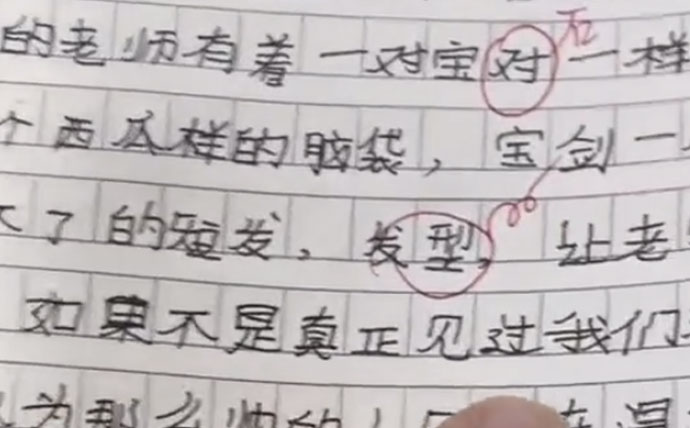 的老师有着一对宝对一样
石
个西瓜样的脑袋，宝剑一
了的短发，发型，让老
如果不是真正见过我们
为那么帅的